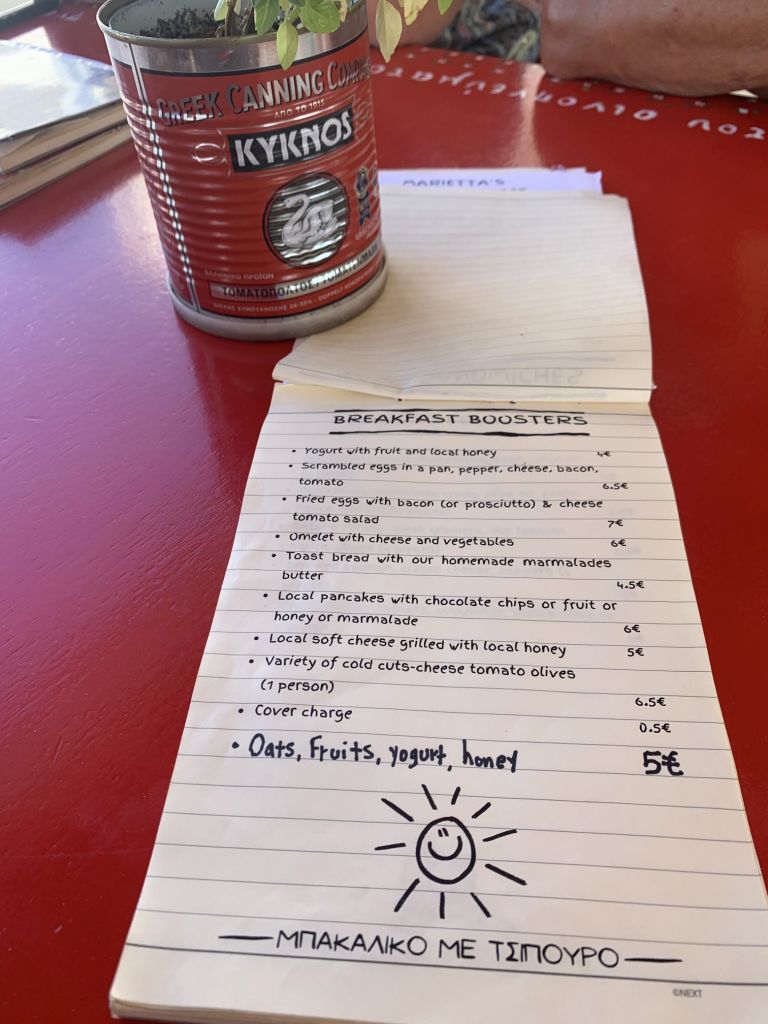 GREEK CANNING COMPANY
ΑΠΟ ΤΟ 1915
KYKNOS
ΕΛΛΗΝΙΚΟ ΠΡΟΪΟΝ
ΤΟΜΑΤΟΠΟΛΤΟΣ/TOMATENMARK
MARIETTA'S
SANDWICHES
BREAKFAST BOOSTERS
• Yogurt with fruit and local honey 4€
• Scrambled eggs in a pan, pepper, cheese, bacon,
tomato 6.5€
• Fried eggs with bacon (or prosciutto) & cheese
tomato salad 7€
• Omelet with cheese and vegetables 6€
• Toast bread with our homemade marmalades
butter 4.5€
• Local pancakes with chocolate chips or fruit or
honey or marmalade 6€
• Local soft cheese grilled with local honey 5€
• Variety of cold cuts-cheese tomato olives
(1 person) 6.5€
• Cover charge 0.5€
• Oats, Fruits, yogurt, honey 5€
ΜΠΑΚΑΛΙΚΟ ΜΕ ΤΣΙΠΟΥΡΟ
©NEXT